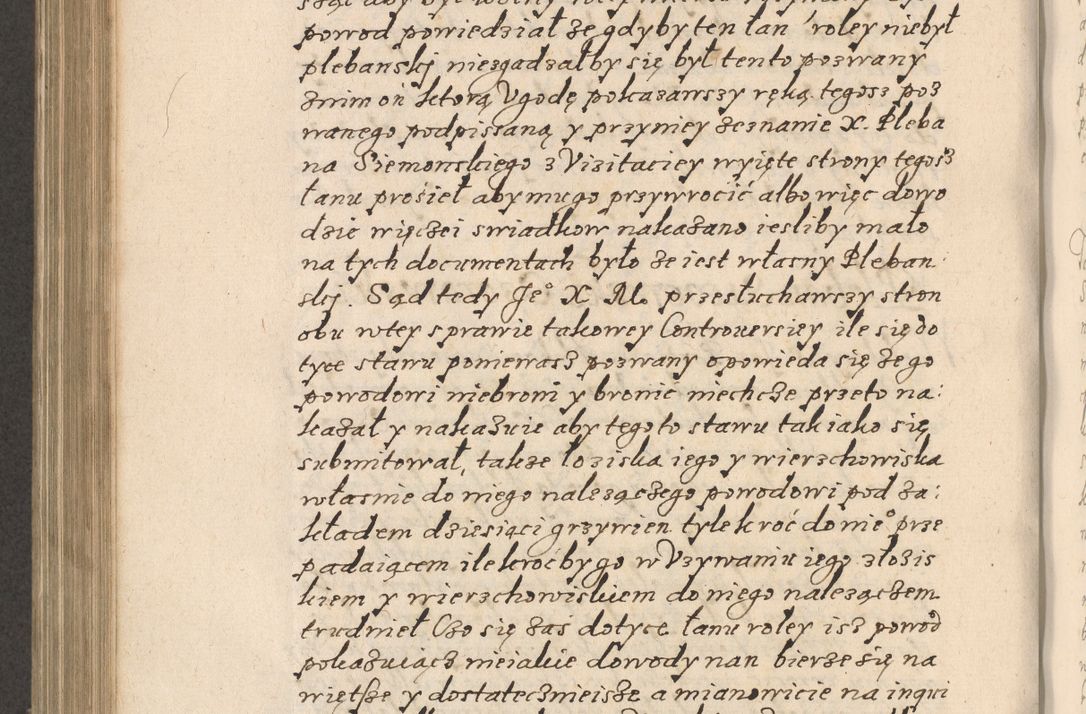 powod powiedział ze gdyby ten łan roley niebył
plebanskj niezgadzałby się był tento pozwany
znim on ktorą Vgodę pokazawszy ręką tegosz poz
wanego podpissaną y przyniey zeznanie X. Pleba
na Siemonskiego z Visitaciey wyięte strony tegosz
łanu prosieł aby mu go przywrocić albo więc dowo
dzic więczei swiadkow nakazano iesliby mało
na tych documentach było ze iest własny Pleban:
skj. Sąd tedy Jeº X. M. przesłuchawszy stron
obu wtey sprawie takowey Controuersiey ile się do
tyce stawu poniewasz pozwany opowieda się ze go
powodowi niebroni y bronić niechcze przeto na:
kazał y nakazuie aby tegoto stawu tak iako się
submitował, takze łoziska iego y wierzchowiska
własnie do niego nalezączego powodowi pod za:
kładem dziesiąci grzywien tylekroć do nieº prze
padaiącem ilekroćby go w Vzywaniu iego złozis
kiem y wierzchowiskiem do niego nalezączem
trudnieł Czo się zaś dotyce łanu roley isz powod
pokazuiącz nieiakie dowody nan bierze się na
więtsze y dostatecznieisze a mianowicie na inqui